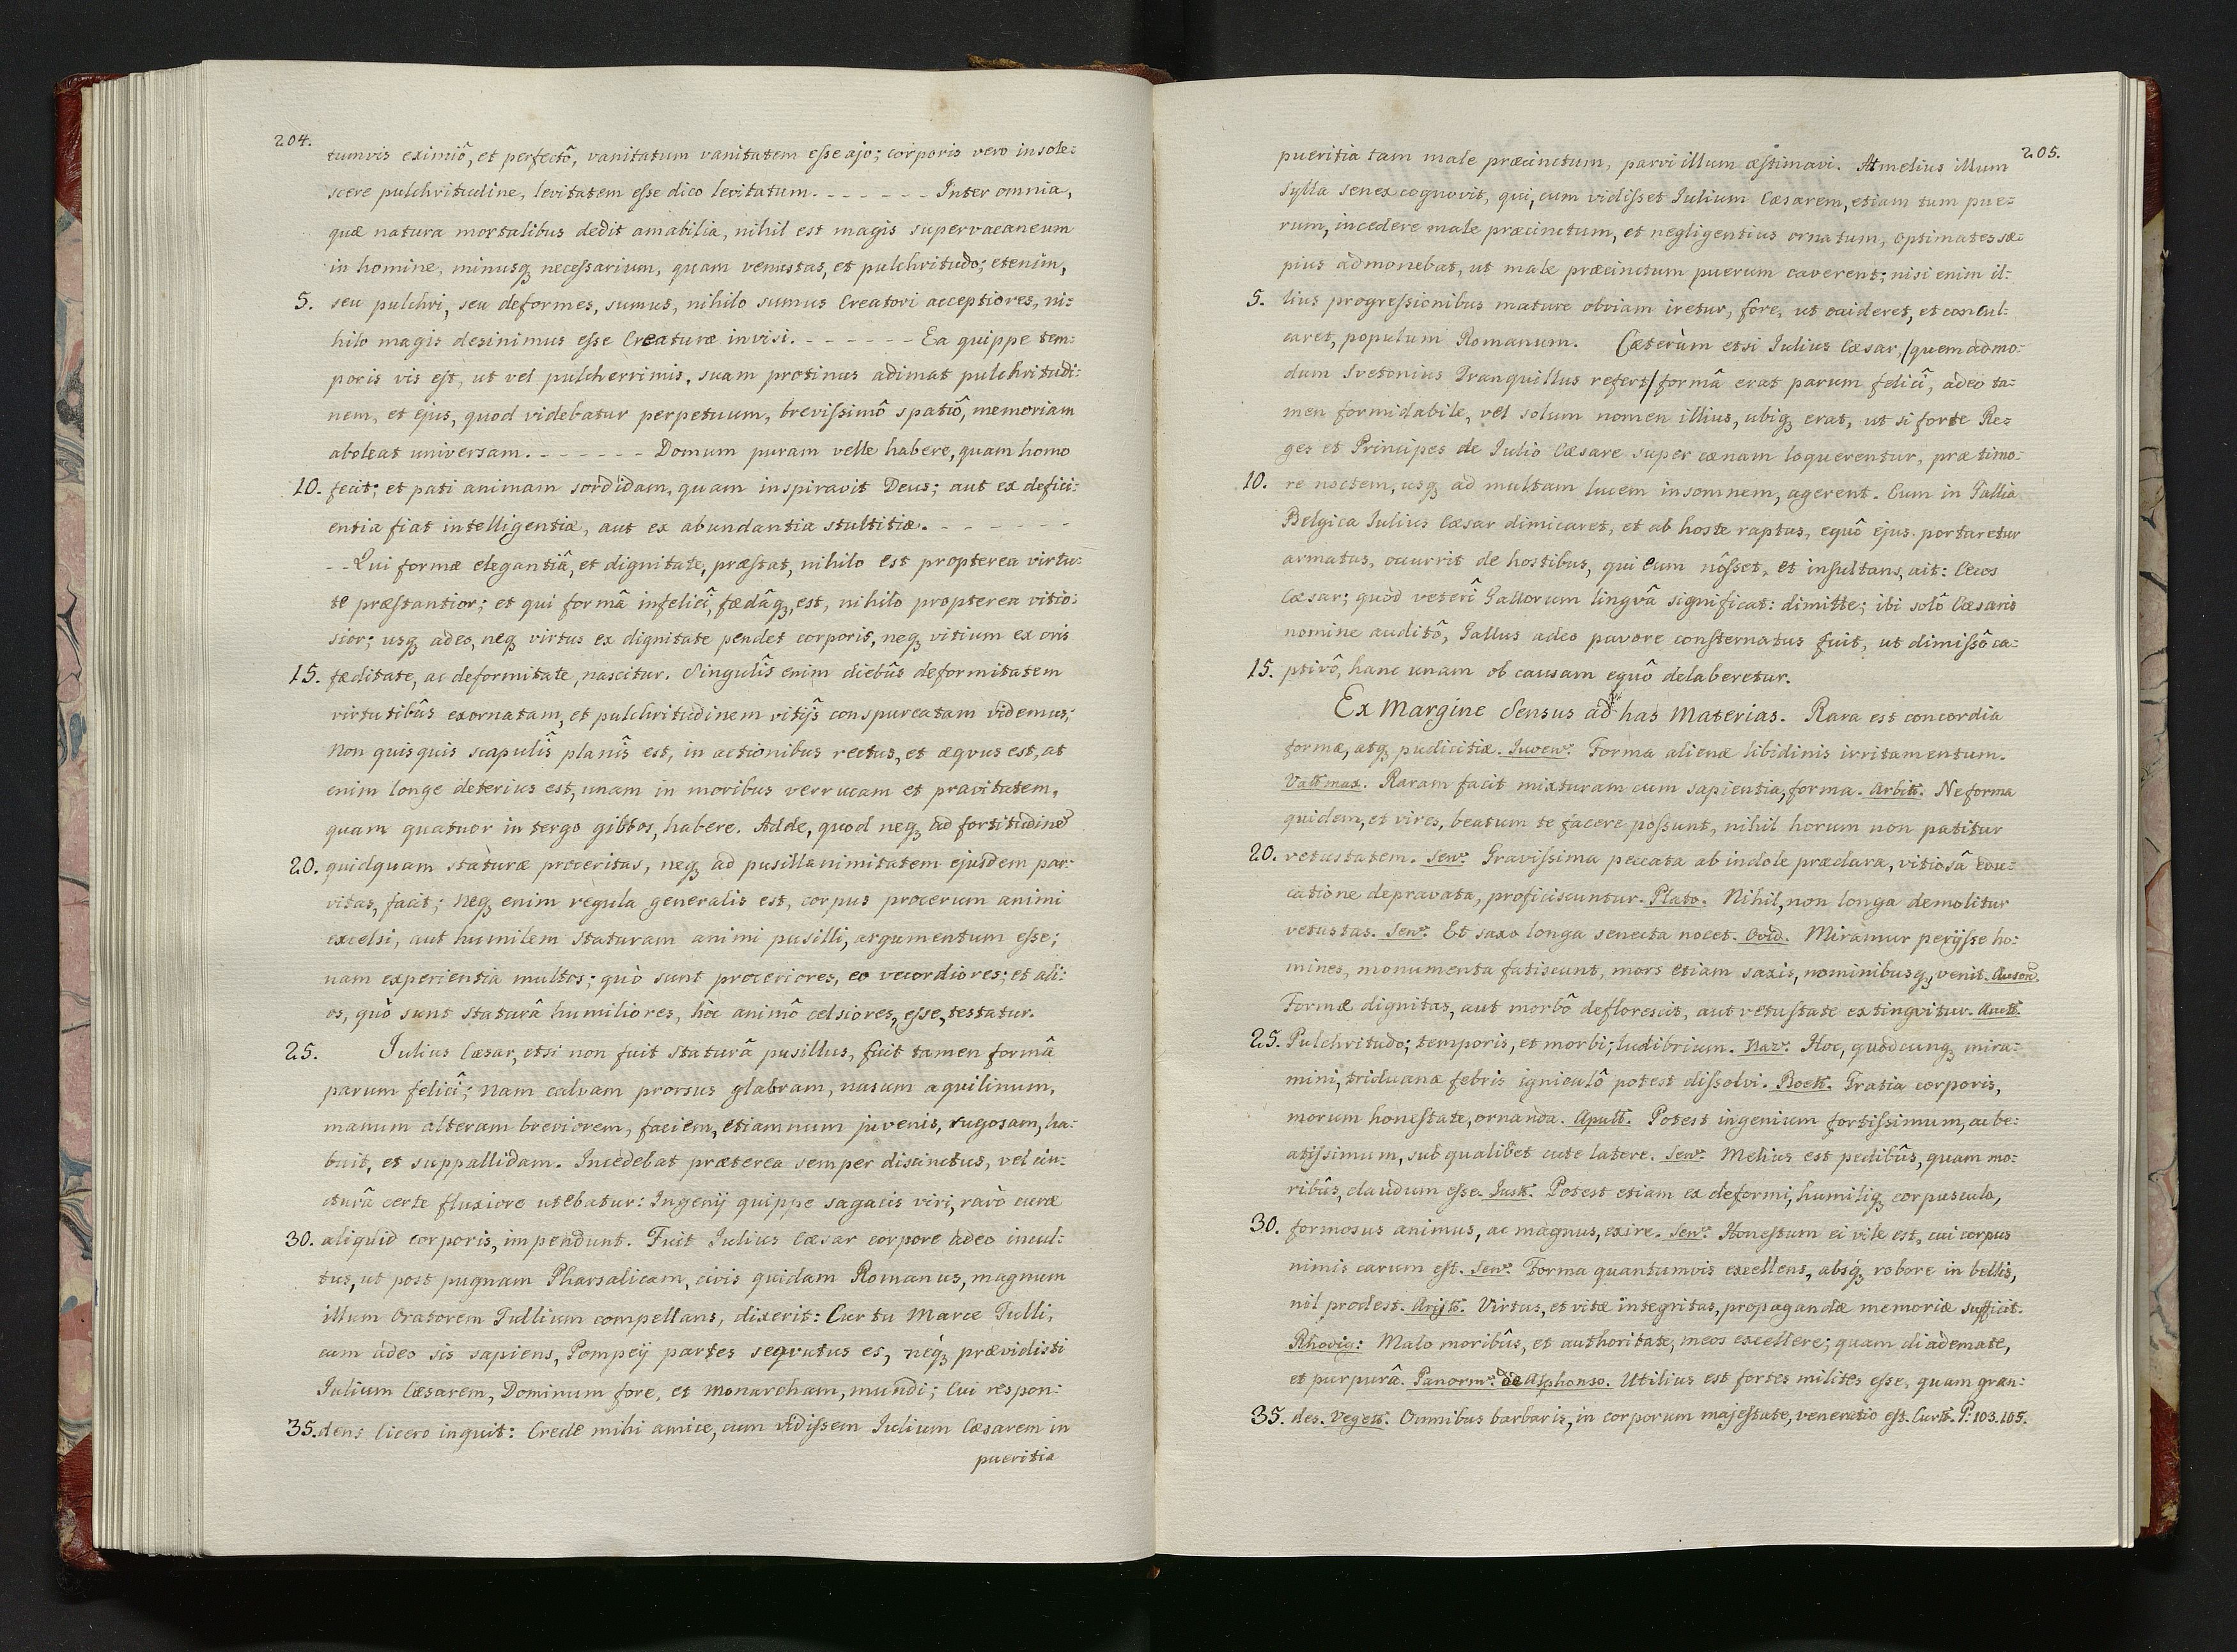 204.
tumvis eximiô, et perfectô, vanitatum vanitatem eſse ajo; corporis vero insole:
scere pulchritudine, levitatem eſse dico levitatum. - - - - - - Inter omnia,
quæ natura mortalibus dedit amabilia, nihil est magis supervacaneum
in homine, minusq₃ neceſsarium, quam venustas, et pulchritudo; etenim,
5. seu pulchri, seu deformes, sumus, nihilo sumus Creatori acceptiores, ni:
hilo magis desinimus eſse Creaturæ invisi. - - - - - - Ea quippe tem:
poris vis eſt, ut vel pulcherrimis, suam protinus adimat pulchritudi:
nem, et ejus, quod videbatur perpetuum, breviſsimô spatiô, memoriam
aboleat universam. - - - - - - Domum puram velle habere, quam homo
10. fecit; et pati animam sordidam, quam inspiravit Deus; aut ex defici:
entia fiat intelligentiæ, aut ex abundantia stultitiæ. - - - - - -
- - Qui formæ elegantiâ, et dignitate, præſtat, nihilo est propterea virtu:
te præſtantior; et qui formâ infelicî, fœdâq₃, est, nihilo propterea vitio:
sior; usq₃ adeo, neq₃ virtus ex dignitate pendet corporis, neq₃ vitium ex oris
15. fæditate, ac deformitate, nascitur. Singulîs enim diebûs deformitatem
virtutibûs exornatam, et pulchritudinem vitijs̑ conspurcatam videmus;
Non quisquis scapulîs planîs est, in actionibus rectus, et æqvus est, at
enim longe deterius est, unam in moribus verrucam et pravitatem,
quam quatuor in tergo gibbos, habere. Adde, quod neq₃ ad fortitudinē
20. quidquam staturæ proceritas, neq₃ ad pusillanimitatem ejusdem par:
vitas, facit; Neq₃ enim regula generalis est, corpus procerum animi
excelsi, aut humilem staturam animi pusilli, argumentum eſse;
nam experientia multos; quò sunt proceriores, eo vecordiores; et ali:
os, quò sunt staturâ humiliores, hôc animô celsiores, eſse, testatur.
25. Iulius Cæsar, etsi non fuit staturâ pusillus, fuit tamen formâ
parum felicî; Nam calvam prorsus glabram, nasum aquilinum,
manum alteram breviorem, faciem, etiamnum juvenis, rugosam, ha:
buit, et suppallidam. Incedebat præterea semper discinctus, vel cin:
cturâ certe fluxiore utebatur: Ingenij quippe sagacis viri, rarò curæ
30. aliquid corporis, impendunt. Fuit Iulius Cæsar corpore adeo incul:
tus, ut post pugnam Pharsalicam, civis quidam Romanus, magnum
illum Oratorem Tullium compellans, dixerit: Cur tu Marce Tulli,
cum adeo sis sapiens, Pompeij partes seqvutus es, neq₃ prævidisti
Iulium Cæsarem, Dominum fore, et Monarcham, mundi; Cui respon:
35. dens Cicero inquit: Crede mihi amice, cum vidiſsem Iulium Cæsarem in
pueritia
205.
pueritia tam male præcinctum, parvi illum æſtimavi. At melius illum
Sylla senex cognovit, qui, cum vidiſset Iulium Cæsarem, etiam tum pue:
rum, incedere male præcinctum, et negligentius ornatum, optimates sæ:
pius admonebat, ut male præcinctum puerum caverent; nisi enim il:
5. lius progreſsionibus mature obviam iretur, fore, ut occideret, et concul:
caret, populum Romanum. Cæterùm etsi Iulius Cæsar, /quemadmo:
dum Svetonius Tranquillus refert/ formâ erat parum felicî, adeo ta:
men formidabile, vel solum nomen illius, ubiq₃ erat, ut si forte Re:
ges et Principes de Iulio Cæsare super cænam loquerentur, præ timo:
10. re noctem, usq₃ ad multam lucem insomnem, agerent. Cum in Gallia
Belgica Iulius Cæsar dimicaret, et ab hoste raptus, equô ejus portaretur
armatus, occurrit de hostibus, qui eum nôſset, et inſultans, ait: Cecos
Cæsar; quòd veterî Gallorum lingvâ significat: dimitte; ibi solô Cæsaris
nomine auditô, Gallus adeo pavore conſternatus fuit, ut dimiſsô ca:
15. ptivô, hanc unam ob causam equô delaberetur.
Ex Margine Sensus ad has Materias. Rara est concordia
formæ, atq₃ pudicitiæ. Juven: Forma alienæ libidinis irritamentum.
Vall max. Raram facit mixturam cum sapientia, forma. Arbit. Ne forma
quidem, et vires, beatum te facere poſsunt, nihil horum non patitur
20. vetustatem. Sen: Graviſsima peccata ab indole præclara, vitiosâ edu:
catione depravata, proficiscuntur. Plato. Nihil, non longa demolitur
vetustas. Sen: Et saxo longa senecta nocet. Ovid. Miramur perijſse ho:
mines, monumenta fatiscunt, mors etiam saxis, nominibusq₃, venit. Auson.
Formæ dignitas, aut morbô deflorescit, aut vetuſtate extingvitur. Auct.
25. Pulchritudo; temporis, et morbi; ludibrium. Naz: Hoc, quodcunq₃ mira:
mini, triduanæ febris igniculô potest diſsolvi. Boet. Gratia corporis,
morum honeſtate, ornanda. Apull. Potest ingenium fortiſsimum, ac be:
atiſsimum, sub qualibet cute latere. Sen: Melius est pedibûs, quam mo:
ribûs, claudum eſse. Just. Potest etiam ex deformi, humiliq₃ corpusculo,
30. formosus animus, ac magnus, exire. Sen: Honeſtum ei vile est, cui corpus
nimis carum eſt. Sen: Forma quantumvis excellens, absq₃ robore in bellis,
nil prodest. Ariſt. Virtus, et vitæ integritas, propagandæ memoriæ sufficit.
Rhodig: Malo moribûs, et authoritate, meos excellere; quam diademate,
et purpurâ. Panorm: de Alphonso. Utilius est fortes milites eſse, quam gran:
35. des. Veget. Omnibus barbaris, in corporum majeſtate, veneratio eſt. Curt. P: 103. 105.